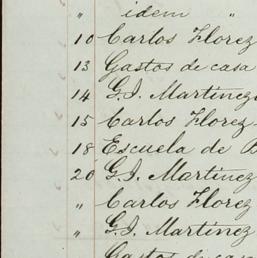 " idem "
10 Carlos Florez
13 Gastos de casa
14 G. J. Martinez
15 Carlos Florez
18 Escuela de
20 G. J. Martinez
" Carlos Florez
" G. J. Martinez
Gastos de casa